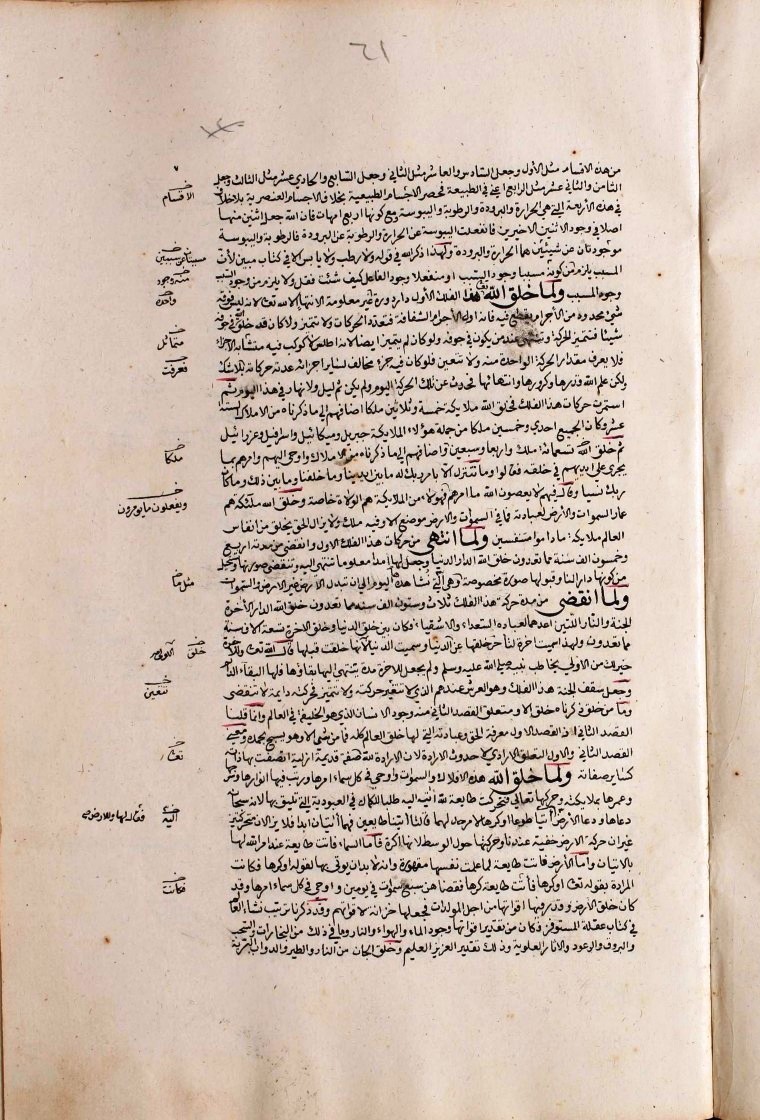 ٦١
من هذه الاقسام مثل الأول وجعل السادس والعاشر مثل الثاني وجعل السابع والحادي عشر مثل الثالث وجعل
الثامن والثاني عشر مثل الرابع اعني في الطبيعة فحصر الاجسام الطبيعية بخلاف الاجسام العنصرية بلا خلاف
في هذه الأربعة التي هي الحرارة والبرودة والرطوبة واليبوسة ومع كونها اربع امهات فان الله جعل اثنين منها
اصلا في وجود الاثنين الاخيرين فانفعلت اليبوسة عن الحرارة والرطوبة عن البرودة فالرطوبة واليبوسة
موجودتان عن شيئين هما الحرارة والبرودة ولهذا ذكر الله في قوله ولا رطب ولا يابس الا في كتاب مبين لأن
المسبب يلزم من كونه مسببا وجود السبب او منفعلا وجود الفاعل كيف شئت فقل ولا يلزم من وجود السبب
وجود المسبب ولما خلق الله هذا الفلك الأول دار دورة غير معلومة الانتهاء الا لله تعالى لانه ليس فوقه
شيء محدود من الأجرام يقطع فيه فانه اول الأجرام الشفافة فتعدد الحركات وتتميز ولا كان قد خلق الله في جوفه
شيئا فتتميز الحركة وتنتهي عند من يكون في جوفه ولو كان لم يتميز ايضا لانه اطلس لا كوكب فيه متشابه الاجزاء
فلا يعرف مقدار الحركة الواحدة منه ولا تتعين فلو كان فيه جزء مخالف لسائر اجزائه عد به حركاته بلا شك
ولكن علم الله قدرها وكرورها وانتهائها فحدث عن تلك الحركة اليوم ولم يكن ثم ليل ولا نهار في هذا اليوم ثم
استمرت حركات هذا الفلك فخلق الله ملايكة خمسة وثلاثين ملكا اضافهم الى ما ذكرناه من الاملاك الستة
عشر وكان الجميع احدي وخمسين ملكا من جملة هؤلاء الملايكة جبريل وميكائيل واسرافيل وعزرائيل
ثم خلق الله تسعمائة ملك واربعا وسبعين واضافهم الى ما ذكرناه من الاملاك واوحى اليهم وامرهم بما
يجري على ايديهم في خلقه فقالوا وما نتنزل الا بامر ربك له ما بين ايدينا وما خلفنا وما بين ذلك وما كان
ربك نسيا وقال فيهم لا يعصون الله ما امرهم فهؤلاء من الملايكة هم الولاة خاصة وخلق الله ملئكة هم
عمار السموات والأرض لعبادته فما في السموات والارض موضع الا وفيه ملك ولا يزال الحق يخلق من انفاس
العالم ملايكة ما داموا متنفسين ولما انتهى من حركات هذا الفلك الاول وانقضى من مدته اربع
وخمسون الف سنة مما تعدون خلق الله الدار الدنيا وجعل لها امدا معلوما تنتهي اليه وتنقضي صورتها وتستحيل
من كونها دارا لنا وقبولها صورة مخصوصة وهي التي نشاهدها اليوم الى ان تبدل الأرض غير الارض والسموات
ولما انقضى من مدة حركة هذا الفلك ثلاث وستون الف سنة مما تعدون خلق الله الدار الآخرة
الجنة والنار اللتين اعدهما لعباده السعداء والاشقياء وكان بين خلق الدنيا وخلق الاخرة تسعة الاف سنة
مما تعدون ولهذا سميت اخرة لتأخر خلقها عن الدنيا وسميت الدنيا لانها خلقت قبلها قال الله تعالى وللآخرة
خير لك من الاولى يخاطب نبيه صلى الله عليه وسلم ولم يجعل للاخرة مدة ينتهي اليها بقاؤها فلها البقاء الدائم
وجعل سقف الجنة هذا الفلك وهو العرش عندهم الذي لا تتعين حركته ولا تتميز فحركته دايمة لا تنقضي
وما من خلق ذكرناه خلق الا ومتعلق القصد الثاني منه وجود الانسان الذي هو الخليفة في العالم وانما قلنا
القصد الثاني اذ القصد الاول معرفة الحق وعبادته التي لها خلق العالم كله فما من شيء الا وهو يسبح بحمده ومعنى
القصد الثاني والاول التعلق الارادي لا حدوث الارادة لان الارادة لله صفة قديمة ازلية اتصفت بها ذاته
كسائر صفاته ولما خلق الله هذه الافلاك والسموات واوحى في كل سماء امرها ورتب فيها انوارها وسرجها
وعمرها بملايكته وحركها تعالى فتحركت طايعة لله آتية اليه طلبا للكمال في العبودية التي تليق بها لانه سبحانه
دعاها ودعا الأرض ائتيا طوعا او كرها لامر حد لهما قالتا اتينا طايعين فهما آتيتان ابدا فلا يزالان متحركتين
غير ان حركة الارض خفية عندنا وحركتها حول الوسط لانها اكرة فاما السماء فاتت طايعة عند امر الله لها
بالاتيان واما الارض فاتت طايعة لما علمت نفسها مقهورة وانه لا بد ان يوتى بها لقوله او كرها فكانت
المرادة بقوله تعالى او كرها فاتت طايعة كرها فقضاهن سبع سموات في يومين واوحى في كل سماء امرها وقد
كان خلق الارض وقدر فيها اقواتها من اجل المولدات فجعلها خزانة لاقواتهم وقد ذكرنا ترتيب نشاة العالم
في كتاب عقلة المستوفز فكان من تقدير اقواتها وجود الماء والهواء والنار وما في ذلك من البخارات والسحب
والبروق والرعود والاثار العلوية وذلك تقدير العزيز العليم وخلق الجان من النار والطير والدواب البرية
الاقسام
مسببتان عن سببين
منه وجود
واحده
متماثل
فعرفت
ملكا
ويفعلون ما يؤمرون
مثل ما
خلق
تتعين
تعالى
آتية
فقال لها وللارض
فكانت